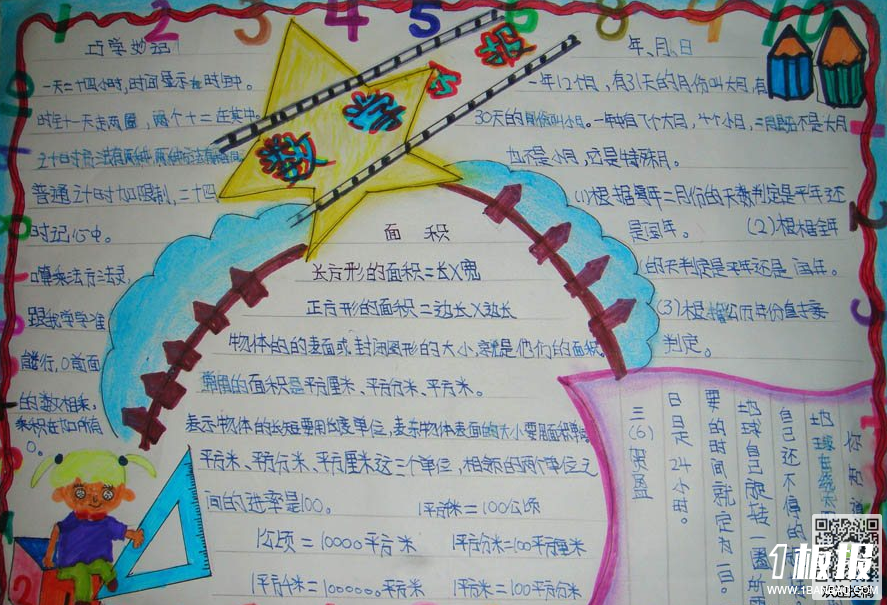 1 2 3 4 5 6 7 8 9 10
数学小报
巧学妙记
一天二十四小时,时间显示在时钟中。
时针一天走两圈,两个十二在其中。
普通计时加限制,二十四
时记心中。
口算乘法方法灵,
跟我学学准
能行,0前面
的数相乘,
0。
年、月、日
一年12个月,有31天的月份叫大月,有
30天的月份叫小月。一年中有7个大月,4个小月,二月既不是大月
也不是小月,还是特殊月。
(1)根据每年二月份的天数判定是平年还
是闰年。 (2)根据全年
的天判定是平年还是闰年。
(3)根据公历年份直接
判定。
面 积
长方形的面积=长X宽
正方形的面积=边长X边长
物体的的表面或封闭图形的大小,就是他们的面积。
常用的面积是平方厘米、平方分米、平方米。
表示物体的长短要用长度单位,表示物体表面的大小要用面积单位
平方米、平方分米、平方厘米这三个单位,相邻的两个单位之
间的进率是100。 1平方千米=100公顷
1公顷=10000平方米 1平方分米=100平方厘米
1平方千米=1000000平方米 1平方米=100平方分米
自己还不停的
地球自己旋转一圈所
要的时间就定为一日。
日是24小时。
三(6)贺盈
1板报
WWW.1BANBAO.COM